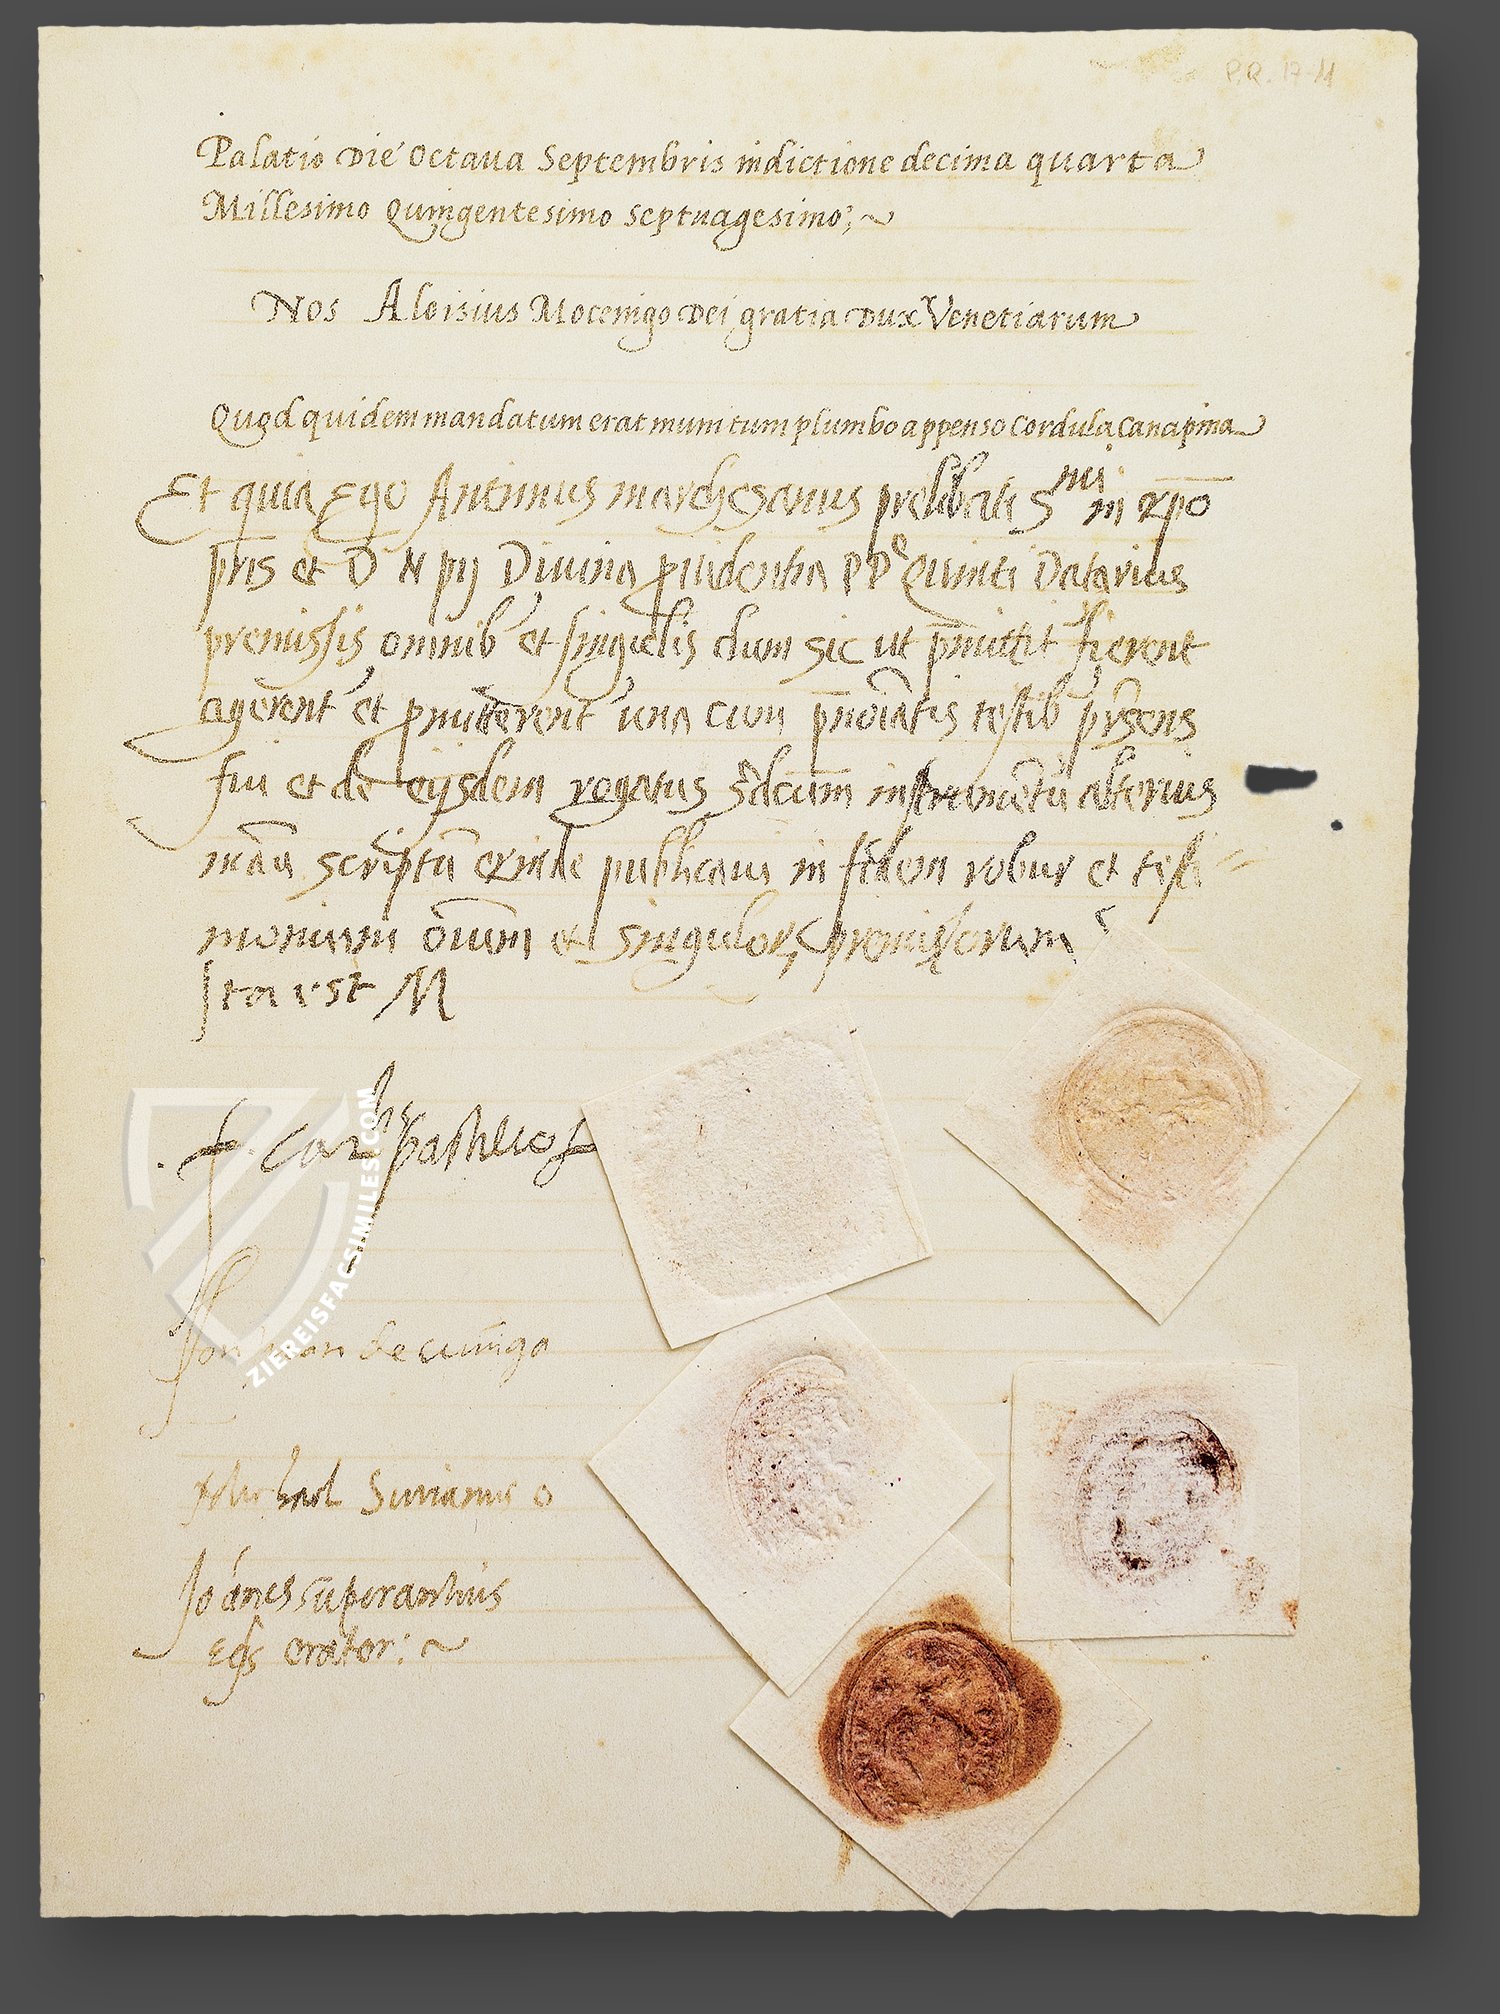 P.Q. 17-11
Palatio Die Octava Septembris indictione decima quarta
Millesimo Quingentesimo septuagesimo;~
Nos Aloisius Mocenigo Dei gratia Dux Venetiarum
Quod quidem mandatum erat munitum plumbo appenso cordula canapina
Et quia Ego Antimus marchesanus prelibati S.mi in xpo
pris et D N pij Divina prudentia PP Quinti Datarius
premissis omnib et singulis dum sic ut pmittit fierent
agerent et pmitterent una cum pnoiatis testib presens
fui et de eijsdem rogatus sdcum instrumetu alterius
manu scriptu exinde publicavi in fidem robur et testi
monium oium et singulor premissorum
Ita est M
f. Car.lis pacheco
Don Juan de cuniga
Michael Surianus o
Joanes superantius
Eqs orator: ~
ZIEREISFACSIMILES.COM